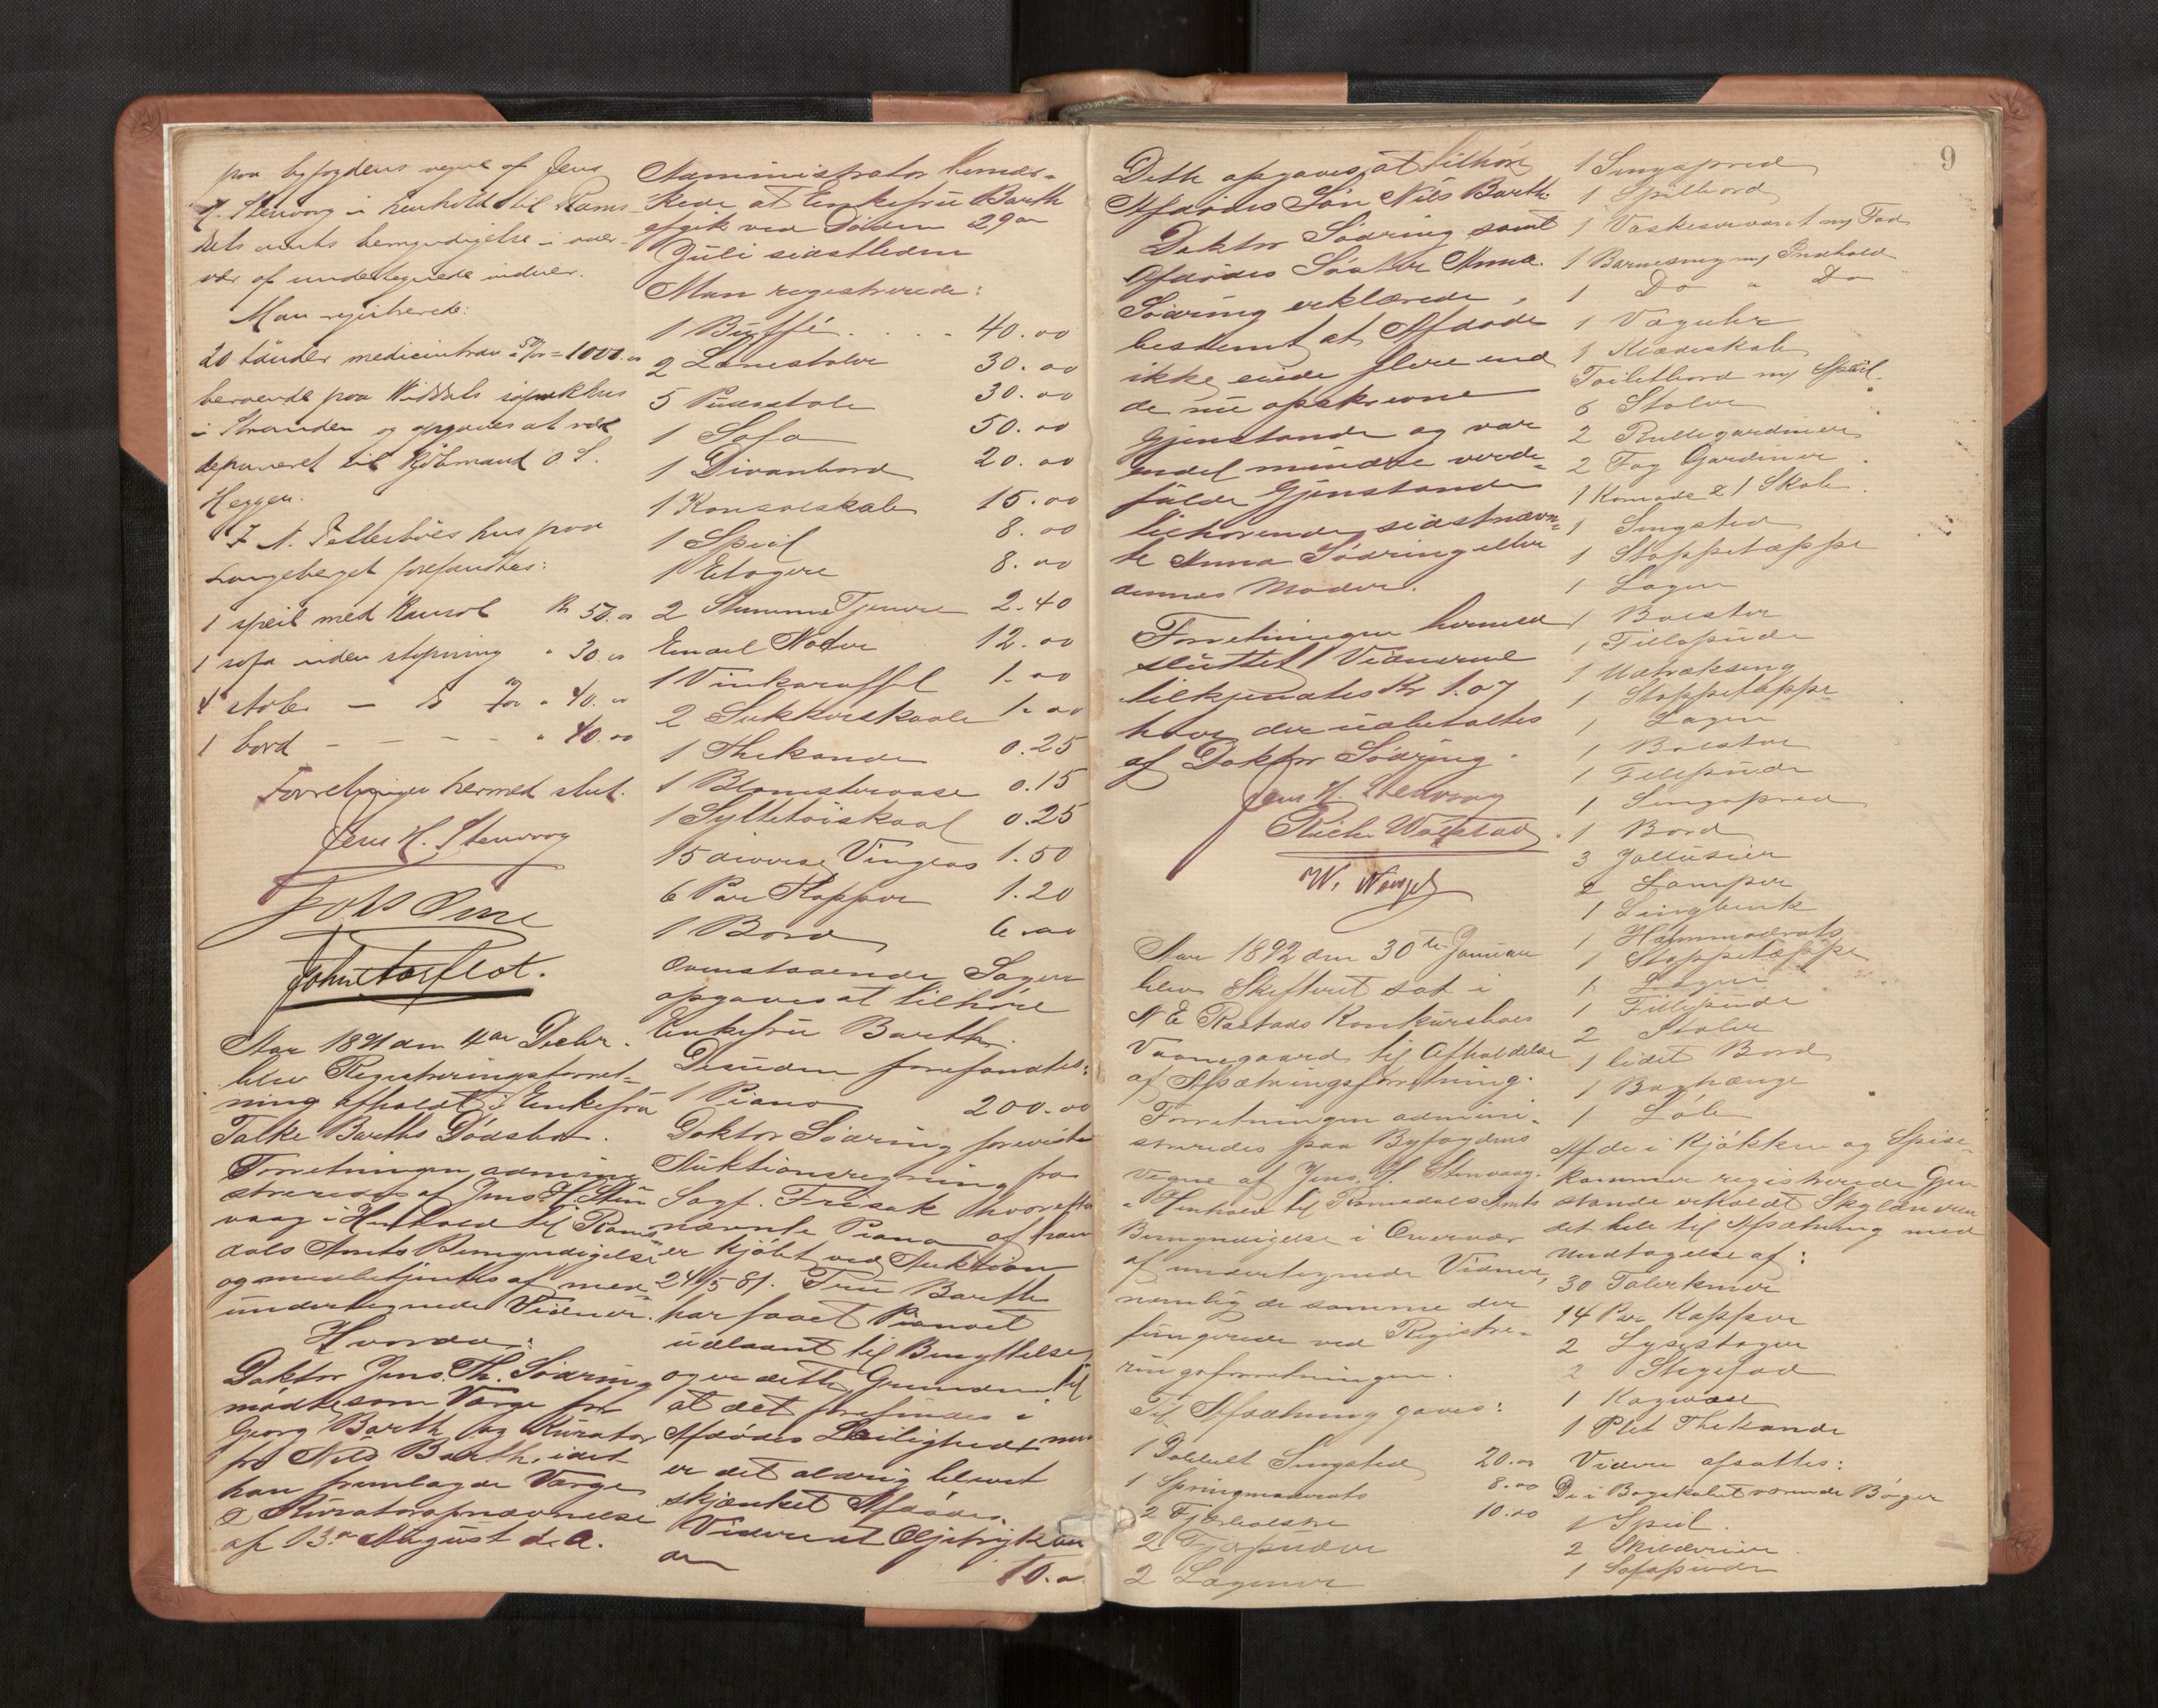 paa byfogdens vegne af Jens
H. Stenvaag i henhold til Roms
dals amts bemyndigelse i over-
vær af undertegnede vidner.
Man registrerede:
20 tønder medicintran a 50/00 = 1000.00
beroende paa søpakhus
i Stranden og opgaves at være
deponeret til Kjøbmand O. S.
Heggen.
I A. hus paa
Langeberget forefandtes:
1 speil med Konsol Kr 50.00
1 sofa uden stopning " 30.00
4 stole — a 10/00 " 40.00
1 bord - - - - " 40.00
Forretningen hermed slut.
Jens H. Stenvaag
Aar 1891 den 4de Decbr.
blev Registreringsforret-
ning afholdt i Enkefru
Talke Barths Dødsbo.
Forretningen admini-
streredes af Jens H. Sten
vaag i Henhold til Roms
dals Amts Bemyndigelse
og medbetjentes af med-
undertegnede Vidner.
Hvorda:
Doktor Jens Th. Södring
mødte som Værge for
Georg Barth og Kurator
for Nils Barth, idet
han fremlagde Værge
& Kuratoropnævnelse
af 13de August d. A.
Administrator bemær-
kede at Enkefru Barth
afgik ved Døden 29de
Juli sidstleden
Man registrerede:
1 Buffé . . . . 40.00
2 Lænestole 30.00
5 Pudestole 30.00
1 Sofa 50.00
1 Divanbord 20.00
1 Konsolskab 15.00
1 Speil 8.00
1 Etagere 8.00
2 Stumme Tjenere 2.40
Endel Noder 12.00
1 Vinkaraffel 1.00
2 Sukkerskaale 1.00
1 Thekande 0.25
1 Blomstervase 0.15
1 Syltetøiskaal 0.25
15 diverse Vinglas 1.50
6 Par Kopper 1.20
1 Bord 6.00
Ovenstaaende Sager
opgaves at tilhøre
Enkefru Barth.
Desuden forefandtes:
1 Piano 200.00
Doktor Södring foreviste
Auktionsregning fra
Sagf. Frisak hvorefter
nævnte Piano af ham
er kjøbt ved Auktion
24/5 81. Fru Barth
har faaet Pianoet
udlaant til Benyttelse
og er dette Grunden til
at det forefindes i
Afdødes Leilighed men
er det aldrig blevet
skjænket Afdøde.
Videre et Oljetryk
10.00
9
Dette opgaves at tilhøre
Afdødes Søn Nils Barth.
Doktor Södring samt
Afdødes Søster Anna
Södring erklærede
bestemt at Afdøde
ikke eiede flere end
de nu opskrevne
Gjenstande og var
endel mindre værdi-
fulde Gjenstande
tilhørende sidstnævn-
te Anna Södring eller
dennes Moder.
Forretningen hermed
sluttet. Vidnerne
tilkjendtes Kr 1.07
hver der udbetaltes
af Doktor Södring.
Jens H. Stenvaag
Aar 1892 den 30te Januar
blev Skifteret sat i
N E Rastads Konkursbo
Vaanegaard til Afholdelse
af Afsætningsforretning.
Forretningen admini-
streredes paa Byfogdens
Vegne af Jens H. Stenvaag
i Henhold til Romsdals Amts
Bemyndigelse i Overvær
af undertegnede Vidner,
nemlig de samme der
fungerede ved Registre-
ringsforretningen.
Til Afsætning gaves:
1 Dobbelt Sengsted 20.00
1 Springmadrats 8.00
2 Fjærbolstre 10.00
2 Fjøpuder
2 Lagener
1 Sengspred
1 Spillebord
1 Vaskeservant m/ Fad
1 Barneseng m/ Indhold
1 Do " Do
1 Væguhr
1 Klædeskab
Toiletbord m/ Speil
6 Stole
2 Rullegardiner
2 Fag Gardiner
1 Komode & 1 Skab
1 Sengsted
1 Stoppetæppe
1 Lagen
1 Bolster
1 Fillepude
1 Udtræksseng
1 Stoppetæppe
1 Lagen
1 Bolster
1 Fillepude
1 Sengspred
1 Bord
3 Jallusier
2 Lamper
1 Sengbenk
1 Halmmadrats
1 Stoppetæppe
1 Lagen
1 Fillepude
2 Stole
1 lidet Bord
1 Baghænge
1
Af de i Kjøkken og Spise-
kammer registrerede Gjen
stande erholdt Skyldneren
det hele til Afsætning med
Undtagelse af:
30 Talerkener
14 Par Kopper
2 Lysestager
2 Stegefad
1 Kagevase
1 Plet Thekande
Videre afsattes:
De i Bogskabet værende Bøger
1 Speil.
2 Skilderier
1 Sofapude